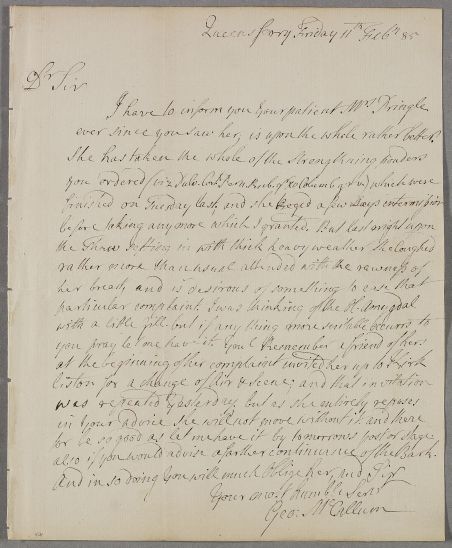 Queensferry Friday 11th Feb.y 85
Dr Sir
I have to inform you your patient Mrs Pringle
ever since you saw her, is upon the whole rather better.
She has taken the whole of the Strengthning powders
you ordered which were
finished on Tuesday last, and she beged a few days intermission
before taking any more which I granted. But last night upon
the Thaw setting in with thick heavy weather She coughed
rather more than usual attended with the rawness of
her breast, and is desirous of something to ease that
particular complaint. I was thinking of the Ol. Amygdal
with a little but if any thing more suitable occurrs to
you pray let me have it. You'l remember a friend of hers
at the beginning of her complaint invited her up to Kirk
liston for a change of Air & Scene; and that invitation
was repeated yesterday, but as she entirely reposes
in your advice she will not move without it and there
for be so good as let me have it by tomorrows post or stage
also if you would advise a farther continuance of the Bark.
And in so doing you will much oblige her, and Sir
Your most humble Servt
Geo: McCallum